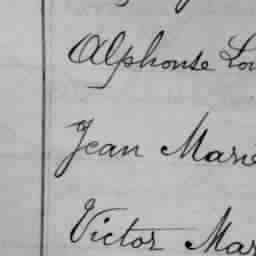 Alphonse Lou
Jean Marie
Victor Mar